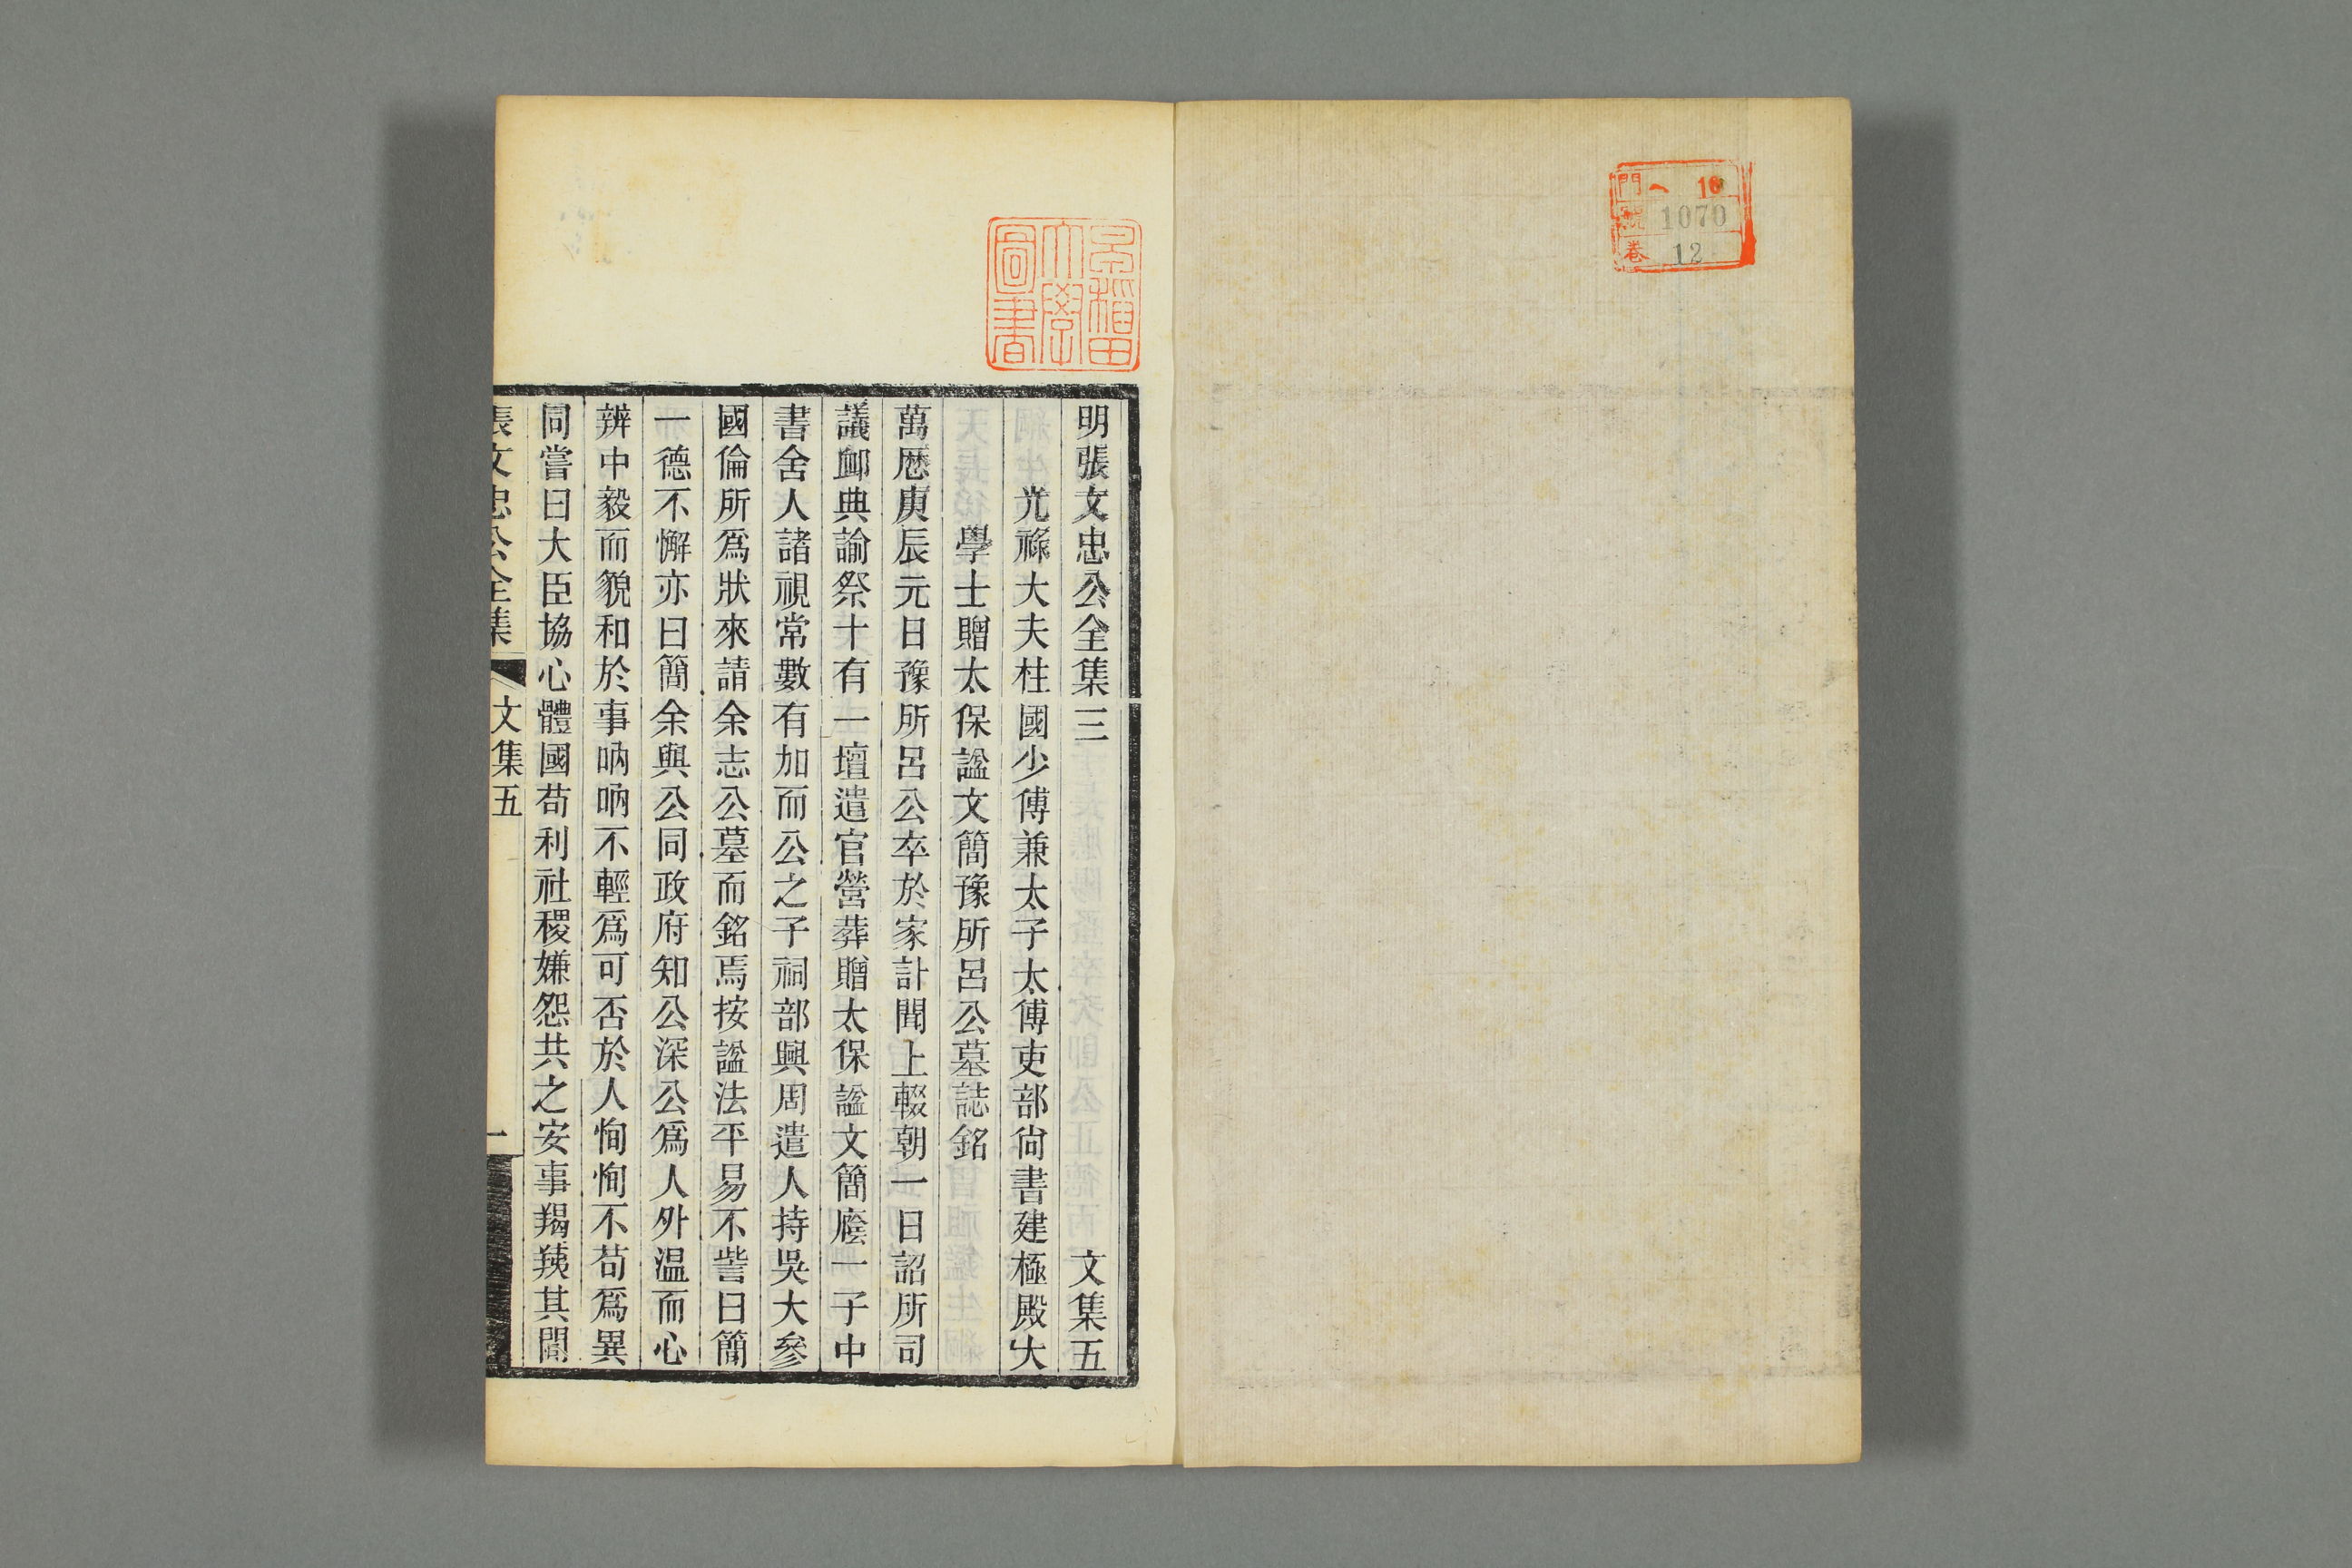 門 ヘ 16
號 1070
卷 12
早稲田
大學
圖書
明張文忠公全集三 文集五
光祿大夫柱國少傅兼太子太傅吏部尙書建極殿大
學士贈太保諡文簡豫所呂公墓誌銘
萬厯庚辰元日豫所呂公卒於家訃聞上輟朝一日詔所司
議卹典諭祭十有一壇遣官營葬贈太保諡文簡廕一子中
書舍人諸視常數有加而公之子祠部興周遣人持吳大參
國倫所爲狀來請余志公墓而銘焉按諡法平易不訾曰簡
一德不懈亦曰簡余與公同政府知公深公爲人外温而心
辨中毅而貌和於事吶吶不輕爲可否於人恂恂不苟爲異
同嘗曰大臣協心體國苟利社稷嫌怨共之安事羯羠其閒
張文忠公全集 文集五 一